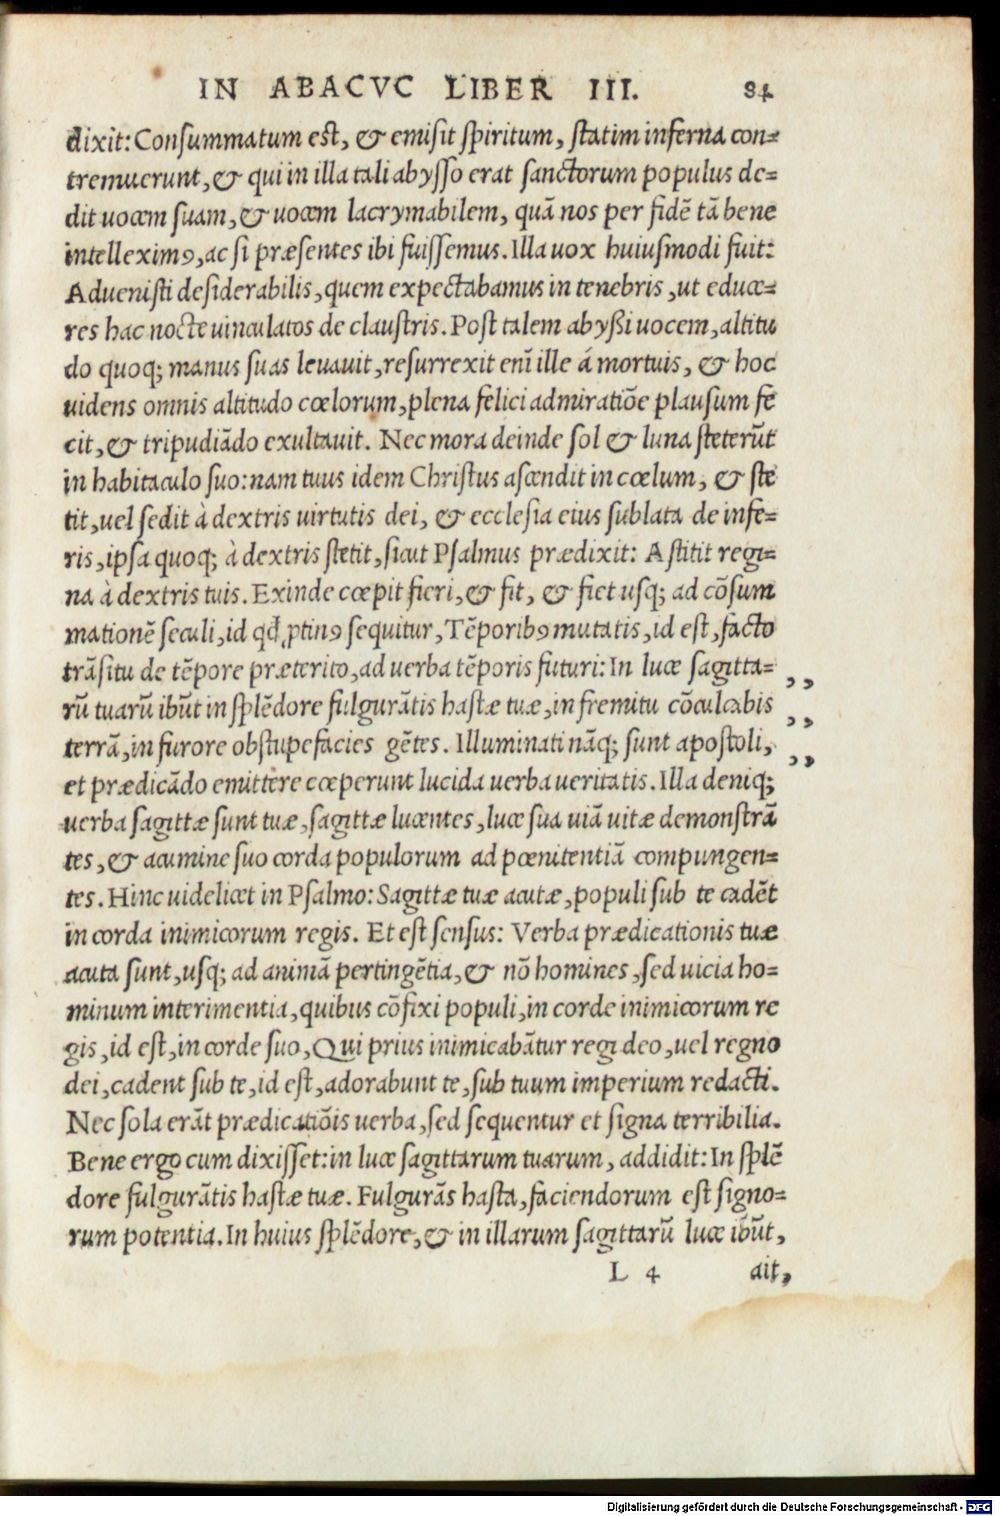 IN ABACVC LIBER III. 84
dixit: Consummatum est, & emisit spiritum, statim inferna con=
tremuerunt, & qui in illa tali abysso erat sanctorum populus de=
dit uocem suam, & uocem lacrymabilem, quã nos per fidẽ tã bene
intelleximꝯ, ac si præsentes ibi fuissemus. Illa uox huiusmodi fuit:
Aduenisti desiderabilis, quem expectabamus in tenebris, ut educe=
res hac nocte uinculatos de claustris. Post talem abyßi uocem, altitu
do quoq; manus suas leuauit, resurrexit enĩ ille á mortuis, & hoc
uidens omnis altitudo cœlorum, plena felici admiratiõe plausum fe
cit, & tripudiãdo exultauit. Nec mora deinde sol & luna steterũt
in habitaculo suo: nam tuus idem Christus ascendit in cœlum, & ste
tit, uel sedit à dextris uirtutis dei, & ecclesia eius sublata de infe=
ris, ipsa quoq; à dextris stetit, sicut Psalmus prædixit: Astitit regi=
na à dextris tuis. Exinde cœpit fieri, & fit, & fiet usq; ad cõsum
mationẽ seculi, id qđ ꝓtinꝯ sequitur, Tẽporibꝯ mutatis, id est, facto
trãsitu de tẽpore præterito, ad uerba tẽporis futuri: In luce sagitta= ,,
rũ tuarũ ibũt in splẽdore fulgurãtis hastæ tuæ, in fremitu cõculcabis ,,
terrã, in furore obstupefacies gẽtes. Illuminati nãq; sunt apostoli, ,,
et prædicãdo emittere cœperunt lucida uerba ueritatis. Illa deniq;
uerba sagittæ sunt tuæ, sagittæ lucentes, luce sua uiã uitæ demonstrã
tes, & acumine suo corda populorum ad pœnitentiã compungen=
tes. Hinc uidelicet in Psalmo: Sagittæ tuæ acutæ, populi sub te cadẽt
in corda inimicorum regis. Et est sensus: Verba prædicationis tuæ
acuta sunt, usq; ad animã pertingẽtia, & nõ homines, sed uicia ho=
minum interimentia, quibus cõfixi populi, in corde inimicorum re
gis, id est, in corde suo, Qui prius inimicabãtur regi deo, uel regno
dei, cadent sub te, id est, adorabunt te, sub tuum imperium redacti.
Nec sola erãt prædicatiõis uerba, sed sequentur et signa terribilia.
Bene ergo cum dixisset: in luce sagittarum tuarum, addidit: In splẽ
dore fulgurãtis hastæ tuæ. Fulgurãs hasta, faciendorum est signo=
rum potentia. In huius splẽdore, & in illarum sagittarũ luce ibũt,
L 4 ait,
Digitalisierung gefördert durch die Deutsche Forschungsgemeinschaft - DFG